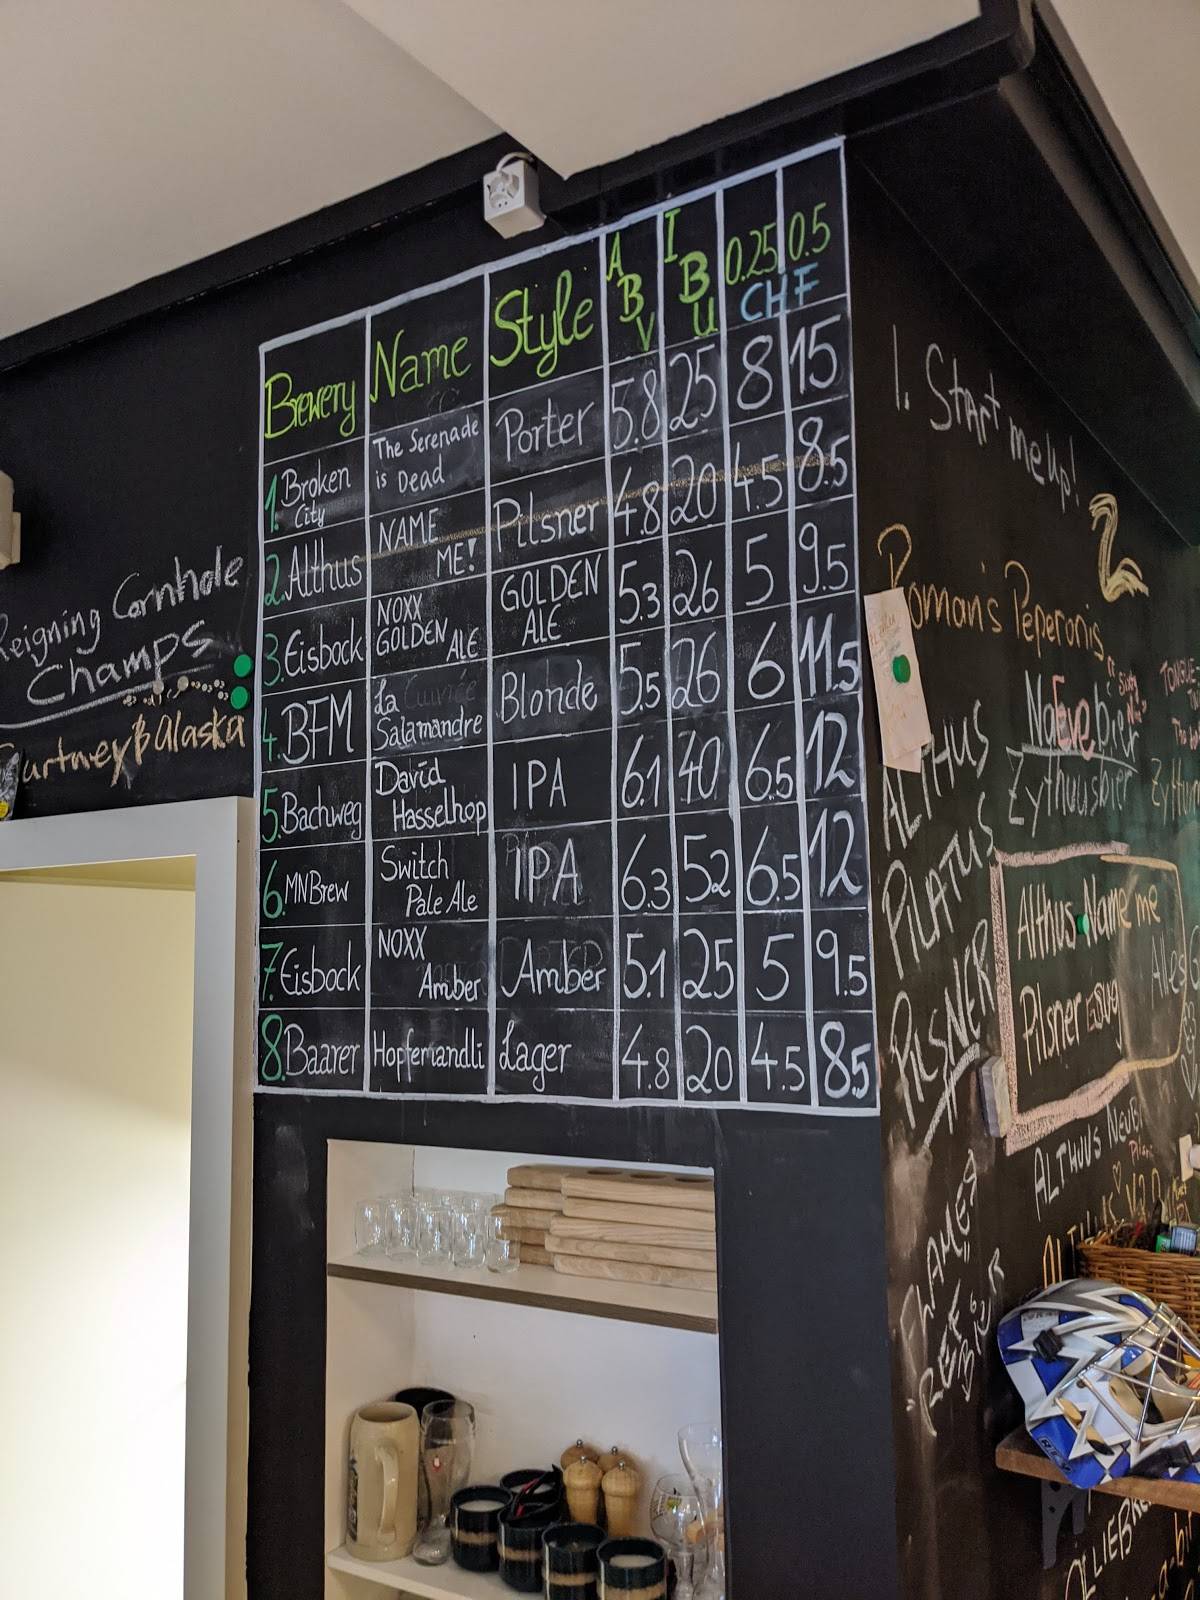 Brewery Name Style ABV IBU 0.25 0.5
CHF
1. Broken City The Serenade is Dead Porter 5.8 25 8 15
2. Althus NAME ME! Pilsner 4.8 20 4.5 8.5
3. Eisbock NOXX GOLDEN ALE GOLDEN ALE 5.3 26 5 9.5
4. BFM La Cuvrée Salamandre Blonde 5.5 26 6 11.5
5. Bachweg David Hasselhop IPA 6.1 40 6.5 12
6. MNBrew Switch Pale Ale IPA 6.3 52 6.5 12
7. Eisbock NOXX Amber Amber 5.1 25 5 9.5
8. Baarer Hopfemandli Lager 4.8 20 4.5 8.5
Reigning Cornhole
Champs
Alaska
1. Start me up!
Roman's Peperonis
NaEvebier
Zythuusbier
ALTHUS
PILATUS
PILSNER
Althus Name me
Pilsner
Ales
ALTHUUS